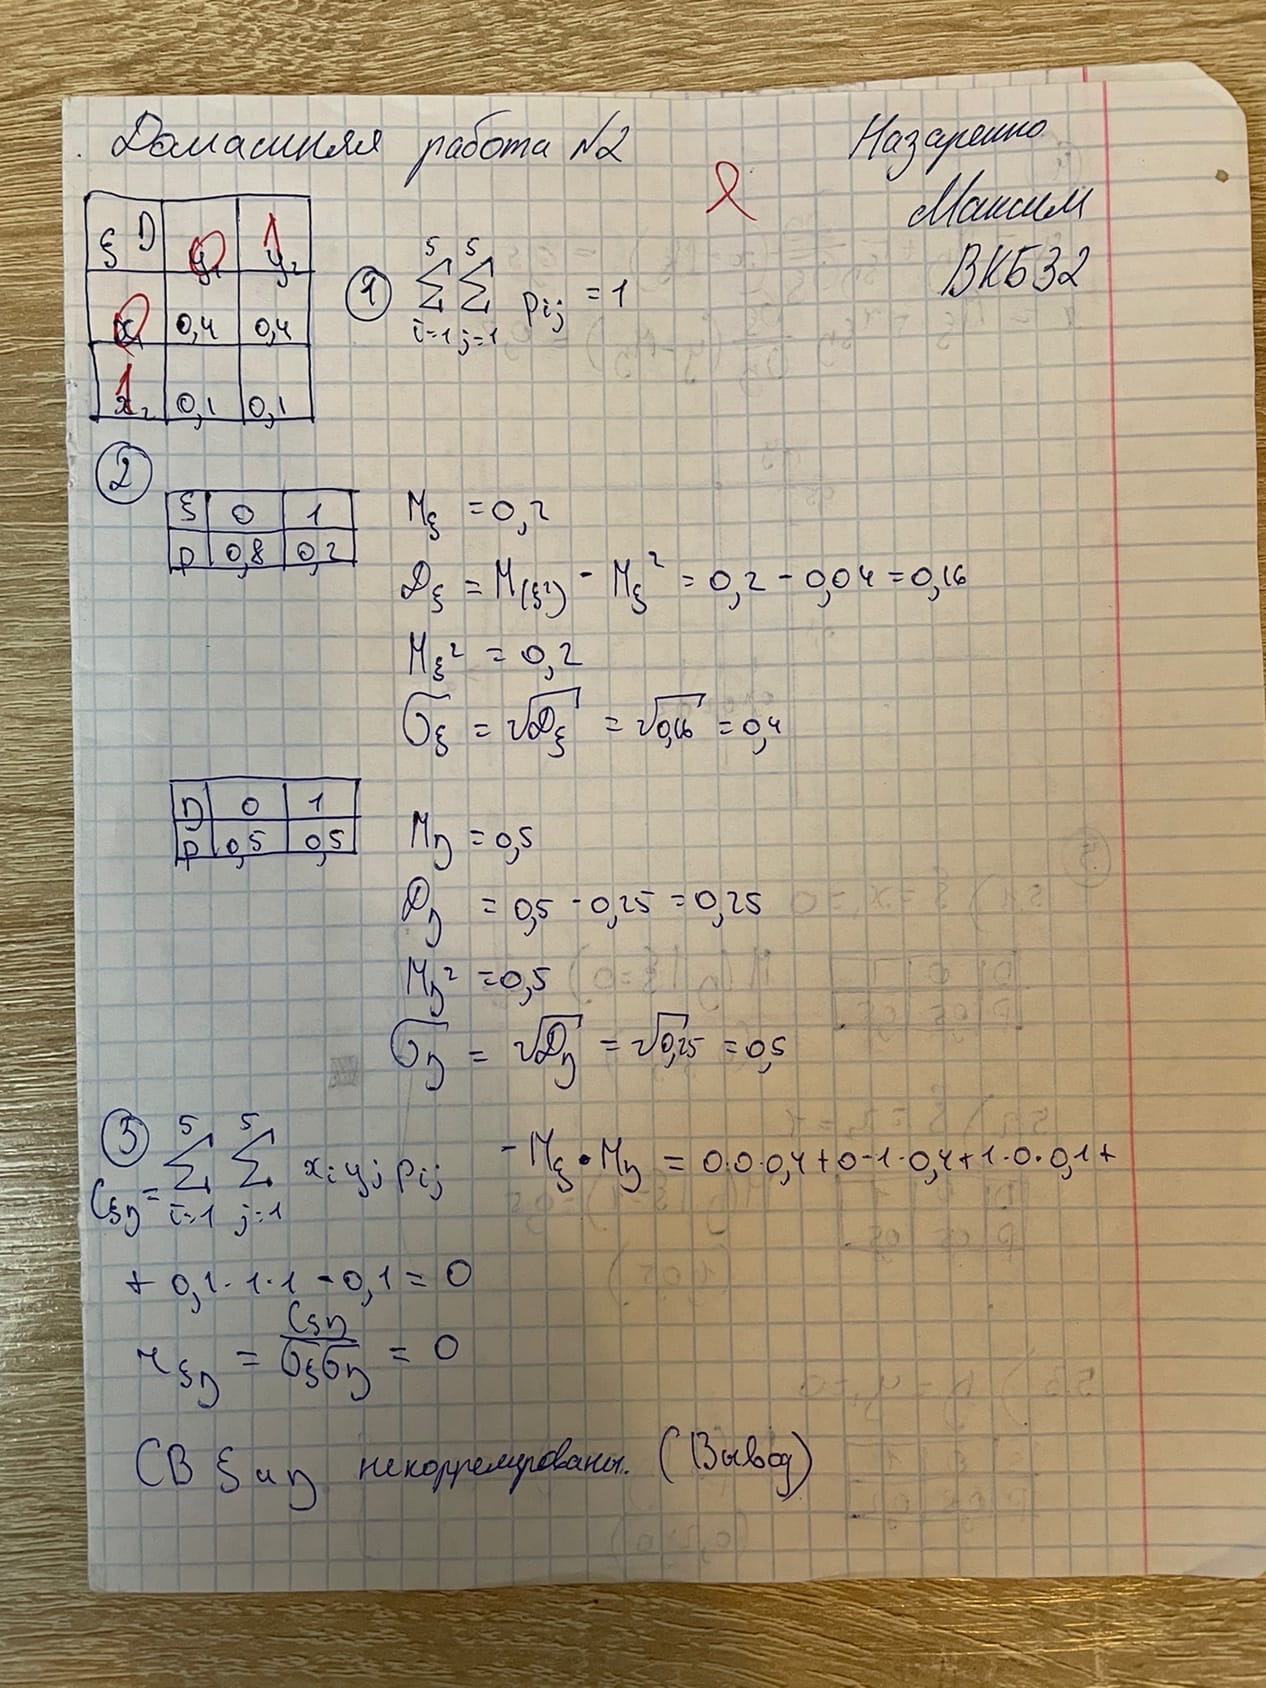 Домашняя работа №2
Назаренко
Максим
ВКБ32
ξ η y₁ 0 y₂ 1
x₁ 0 0,4 0,4
x₂ 1 0,1 0,1
① 5 5 ∑ ∑ pij = 1 i=1 j=1
②
ξ 0 1
p 0,8 0,2
Mξ = 0,2
Dξ = M(ξ²) - Mξ² = 0,2 - 0,04 = 0,16
Mξ² = 0,2
σξ = √Dξ = √0,16 = 0,4
η 0 1
p 0,5 0,5
Mη = 0,5
Dη = 0,5 - 0,25 = 0,25
Mη² = 0,5
ση = √Dη = √0,25 = 0,5
③
Cξη = 5 5 ∑ ∑ xi yj pij i=1 j=1 - Mξ • Mη = 0·0·0,4 + 0·1·0,4 + 1·0·0,1 +
+ 0,1·1·1 - 0,1 = 0
rξη = Cξη / σξση = 0
СВ ξ и η некоррелированы. (Вывод)